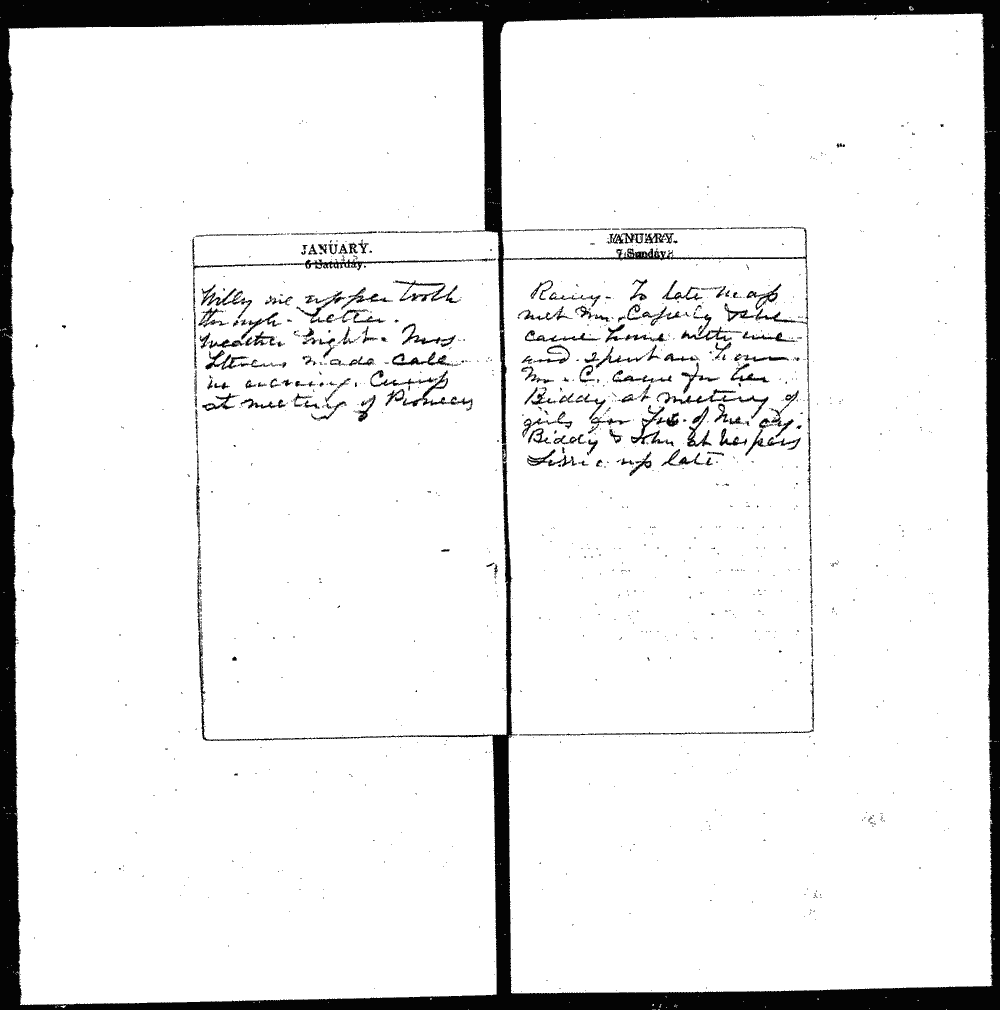 JANUARY.
6 Saturday.
Willy one upper tooth
through - better.
Weather bright. Miss
Stevens made call
in evening. Crump
at meeting of Pioneers
JANUARY.
7 Sunday.
Rainy - To late Mass
met Mrs. Caperly & she
came home with me
and spent an hour.
Mr. C. came for her
Biddy at meeting of
girls for of Mercy.
Biddy & John at Vespers
Lizzie up late